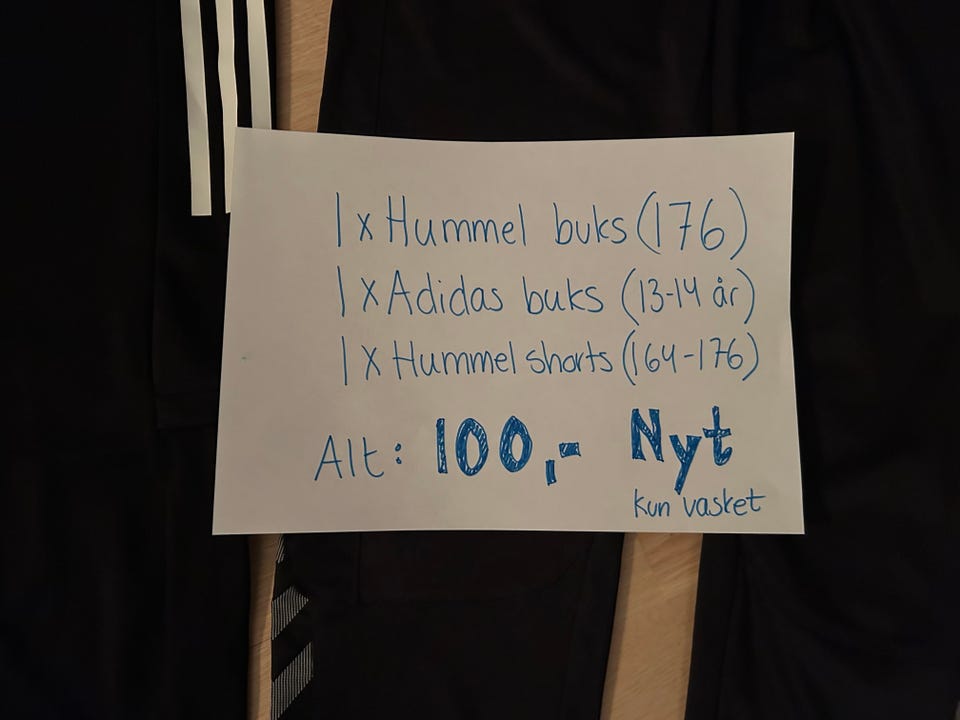 1 x Hummel buks (176)
1 x Adidas buks (13-14 år)
1 x Hummel shorts (164-176)
Alt: 100,- Nyt
kun vasket